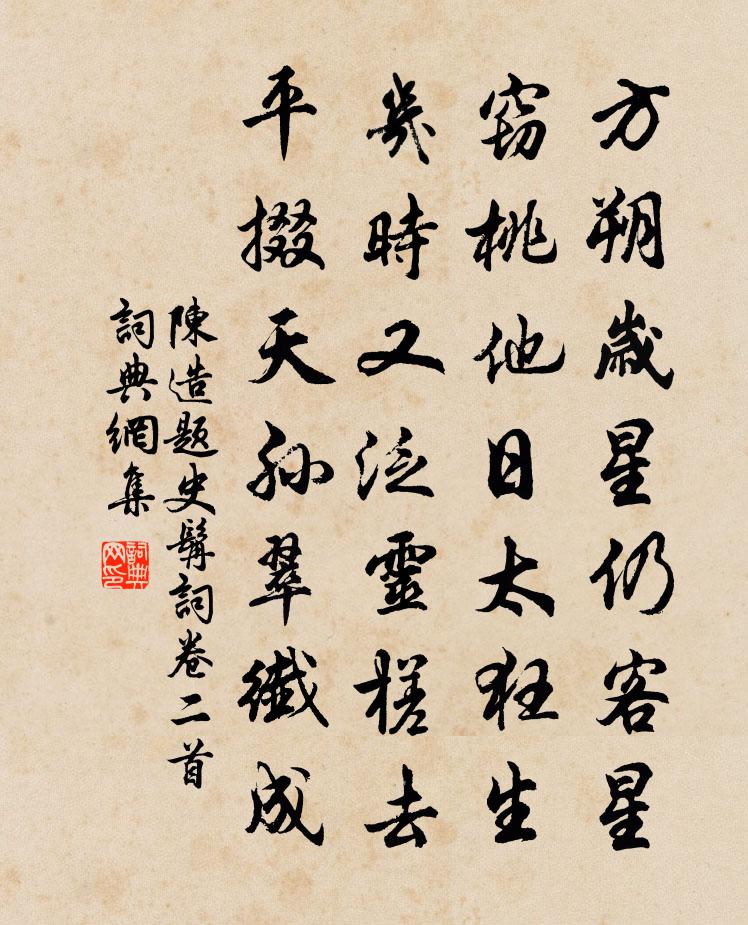 方朔歲星仍客星
竊桃他日太狂生
幾時又泛靈槎去
平掇天孫翠織成
陳造題史髯詞卷二首
詞典網集
詞典网印